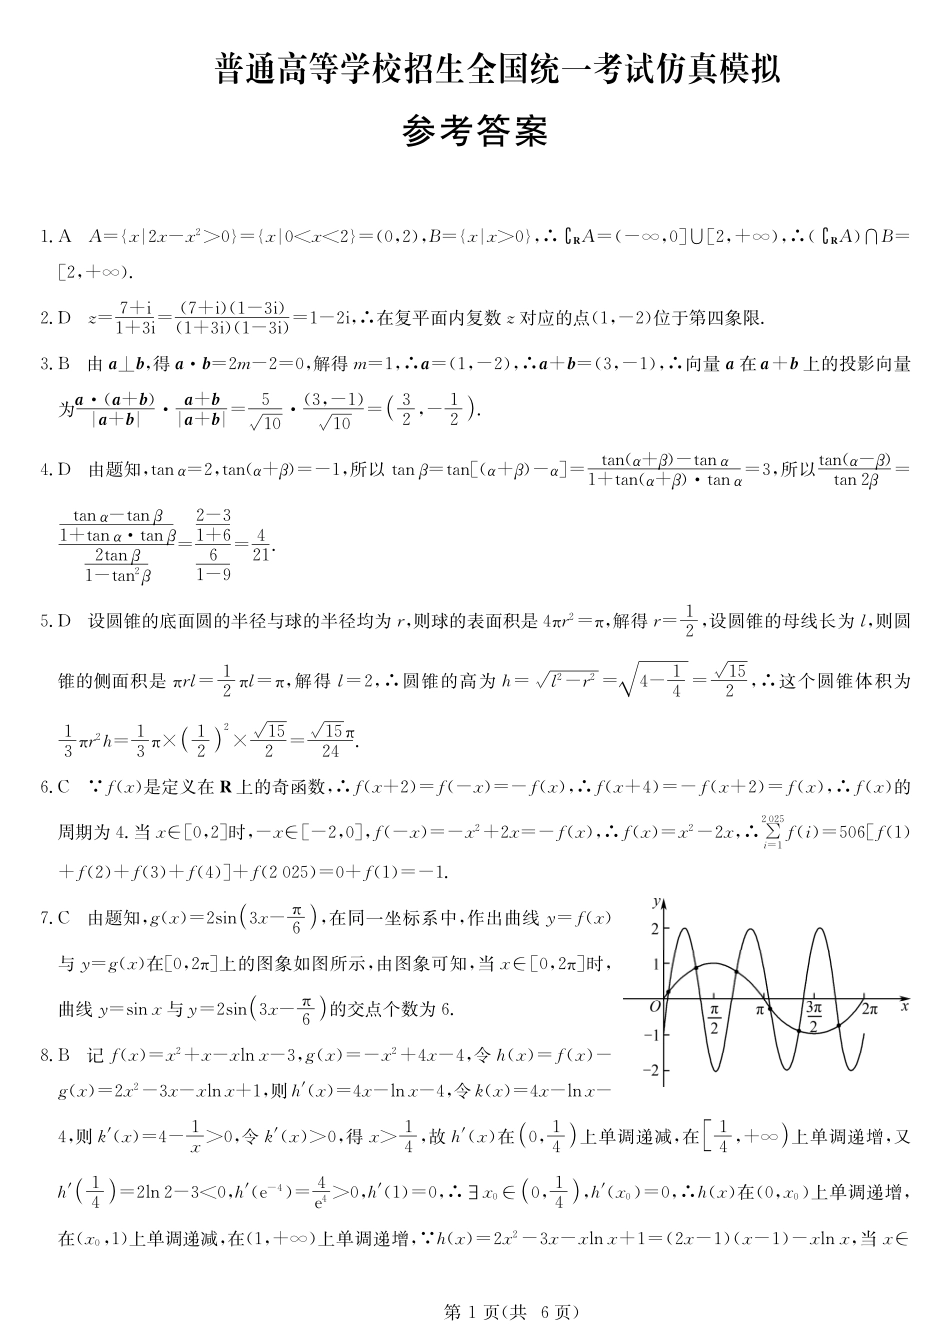 普通高等学校招生全国统一考试仿真模拟
参考答案
1. A A={x|2x-x²>0}={x|0<x<2}=(0,2),B={x|x>0},∴∁RA=(-∞,0]∪[2,+∞),∴(∁RA)∩B=
[2,+∞).
2. D z=(7+i)/(1+3i)=(7+i)(1-3i)/((1+3i)(1-3i))=1-2i,∴在复平面内复数z对应的点(1,-2)位于第四象限.
3. B 由a⊥b,得a·b=2m-2=0,解得m=1,∴a=(1,-2),∴a+b=(3,-1),∴向量a在a+b上的投影向量
为a·(a+b)/|a+b|·(a+b)/|a+b|=5/√10·(3,-1)/√10=(3/2,-1/2).
4. D 由题知,tan α=2,tan(α+β)=-1,所以tan β=tan[(α+β)-α]=(tan(α+β)-tan α)/(1+tan(α+β)·tan α)=3,所以tan(α-β)/tan 2β=
((tan α-tan β)/(1+tan α·tan β))/(2tan β/(1-tan²β))=((2-3)/(1+6))/(6/(1-9))=4/21.
5. D 设圆锥的底面圆的半径与球的半径均为r,则球的表面积是4πr²=π,解得r=1/2,设圆锥的母线长为l,则圆
锥的侧面积是πrl=1/2πl=π,解得l=2,∴圆锥的高为h=√(l²-r²)=√(4-1/4)=√15/2,∴这个圆锥体积为
1/3πr²h=1/3π×(1/2)²×√15/2=√15π/24.
6. C ∵f(x)是定义在R上的奇函数,∴f(x+2)=f(-x)=-f(x),∴f(x+4)=-f(x+2)=f(x),∴f(x)的
周期为4.当x∈[0,2]时,-x∈[-2,0],f(-x)=-x²+2x=-f(x),∴f(x)=x²-2x,∴∑(i=1→2 025)f(i)=506[f(1)
+f(2)+f(3)+f(4)]+f(2 025)=0+f(1)=-1.
7. C 由题知,g(x)=2sin(3x-π/6),在同一坐标系中,作出曲线y=f(x)
与y=g(x)在[0,2π]上的图象如图所示,由图象可知,当x∈[0,2π]时,
曲线y=sin x与y=2sin(3x-π/6)的交点个数为6.
y
2
1
O π/2 π 3π/2 2π x
-1
-2
8. B 记f(x)=x²+x-xln x-3,g(x)=-x²+4x-4,令h(x)=f(x)-
g(x)=2x²-3x-xln x+1,则h′(x)=4x-ln x-4,令k(x)=4x-ln x-
4,则k′(x)=4-1/x>0,令k′(x)>0,得x>1/4,故h′(x)在(0,1/4)上单调递减,在[1/4,+∞)上单调递增,又
h′(1/4)=2ln 2-3<0,h′(e⁻⁴)=4/e⁴>0,h′(1)=0,∴∃x₀∈(0,1/4),h′(x₀)=0,∴h(x)在(0,x₀)上单调递增,
在(x₀,1)上单调递减,在(1,+∞)上单调递增,∵h(x)=2x²-3x-xln x+1=(2x-1)(x-1)-xln x,当x∈
第 1 页(共 6 页)